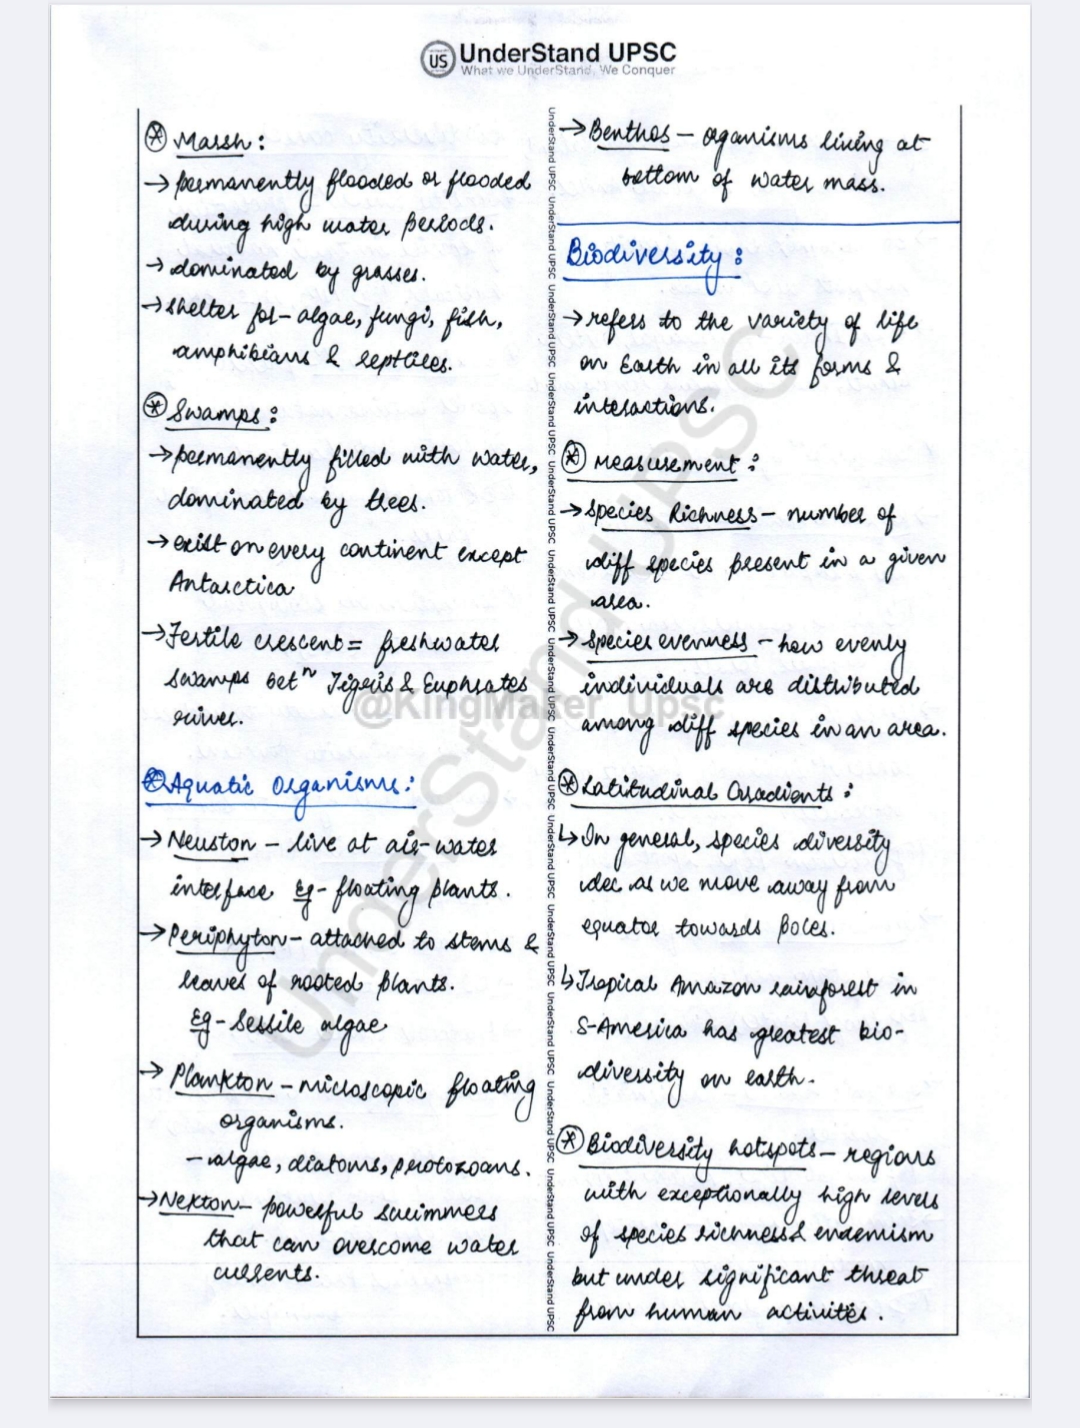 US
UnderStand UPSC
What we UnderStand, We Conquer
Marsh :
→ permanently flooded or flooded
during high water periods.
→ dominated by grasses.
→ shelter for - algae, fungi, fish,
amphibians & reptiles.
Swamps :
→ permanently filled with water,
dominated by trees.
→ exist on every continent except
Antarctica
→ Fertile crescent = freshwater
swamps betⁿ Tigris & Euphrates
river.
Aquatic Organisms :
→ Neuston - live at air-water
interface Eg - floating plants.
→ Periphyton - attached to stems &
leaves of rooted plants.
Eg - Sessile algae
→ Plankton - microscopic floating
organisms.
- algae, diatoms, protozoans.
→ Nekton - powerful swimmers
that can overcome water
currents.
→ Benthos - organisms living at
bottom of water mass.
Biodiversity :
→ refers to the variety of life
on Earth in all its forms &
interactions.
Measurement :
→ Species Richness - number of
diff species present in a given
area.
→ Species evenness - how evenly
individuals are distributed
among diff species in an area.
Latitudinal Gradients :
↳ In general, species diversity
dec as we move away from
equator towards poles.
↳ Tropical Amazon rainforest in
S-America has greatest bio-
diversity on earth.
Biodiversity hotspots - regions
with exceptionally high levels
of species richness & endemism
but under significant threat
from human activites.
UnderStand UPSC
@KingMaker_Upsc